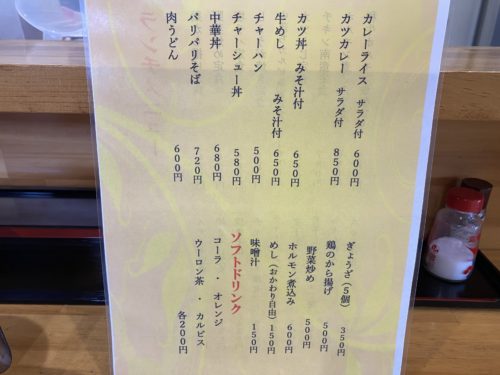 カレーライス サラダ付 600円
カツカレー サラダ付 850円
カツ丼 みそ汁付 650円
牛めし みそ汁付 650円
チャーハン 500円
チャーシュー丼 580円
中華丼 680円
パリパリそば 720円
肉うどん 600円
ぎょうざ(5個) 350円
鶏のから揚げ 500円
野菜炒め 500円
ホルモン煮込み 600円
めし(おかわり自由) 150円
味噌汁 150円
ソフトドリンク
コーラ ・ オレンジ
ウーロン茶 ・ カルピス
各200円